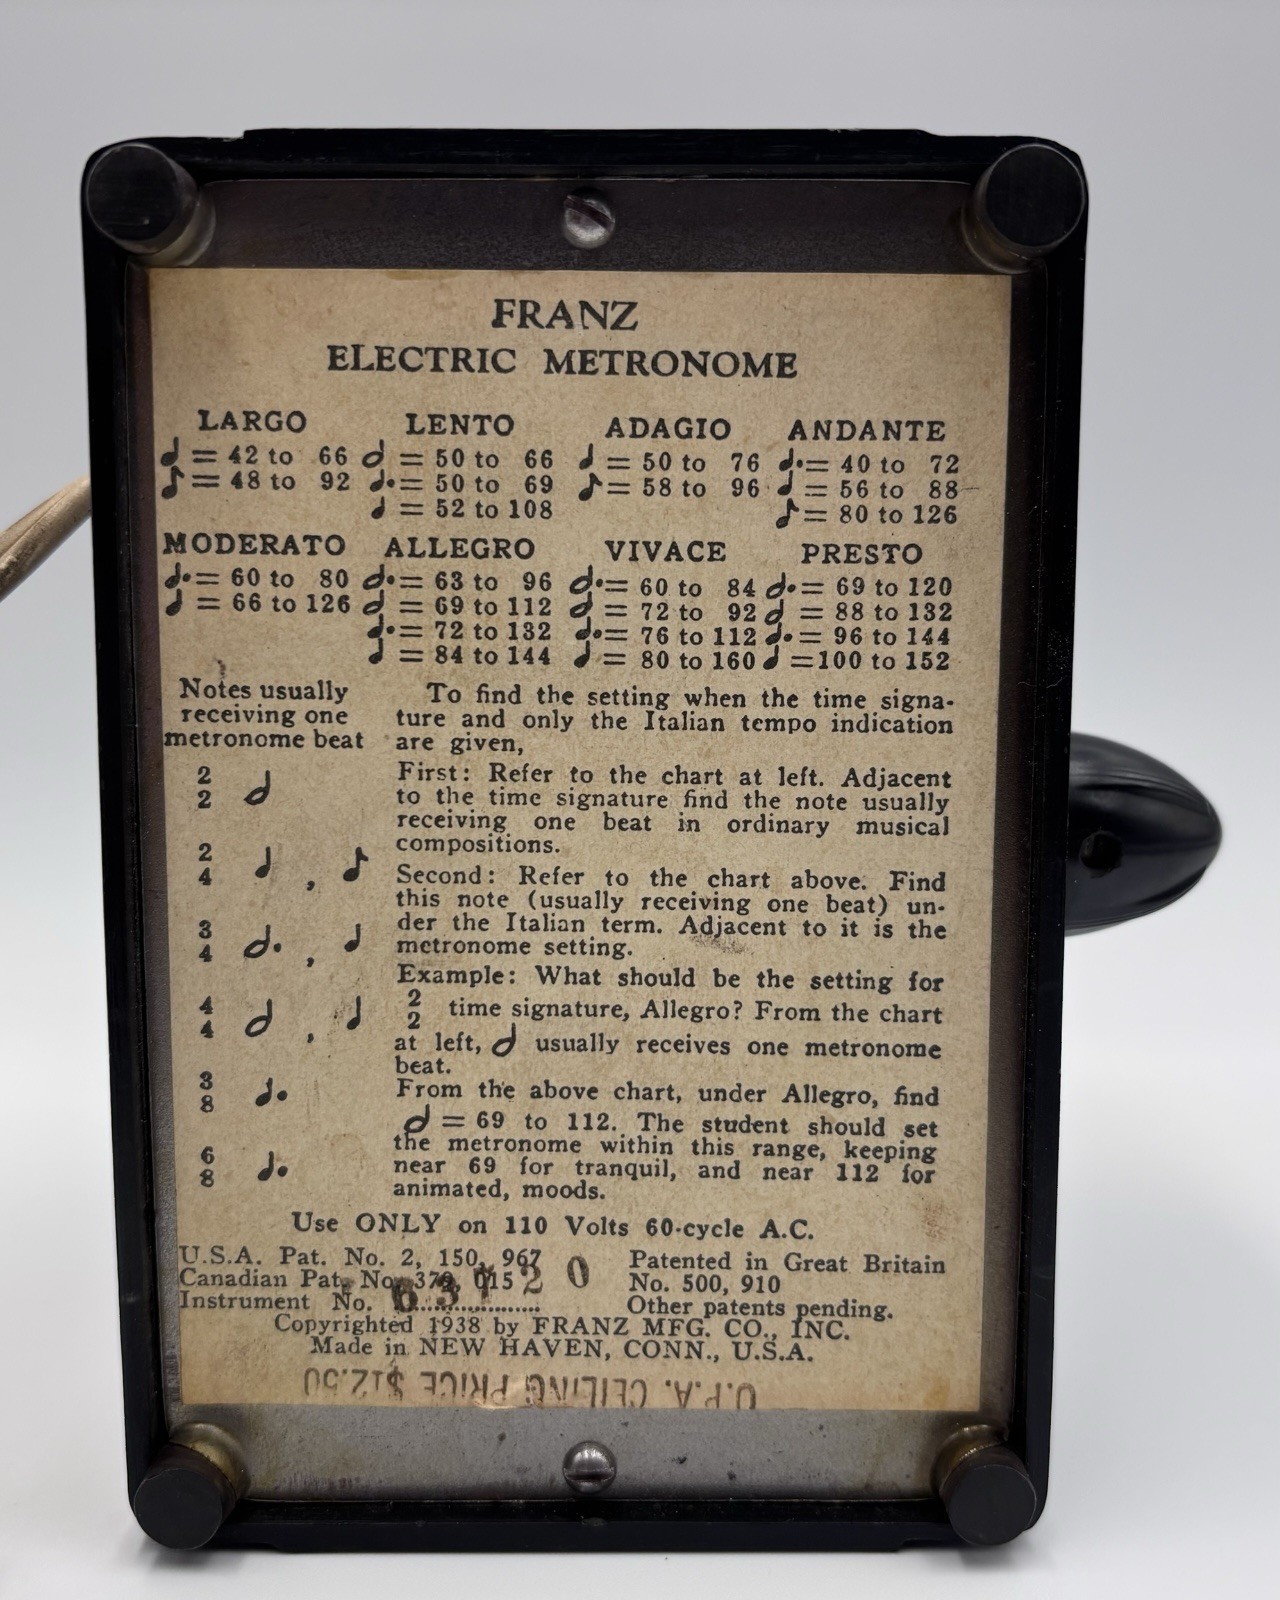 FRANZ
ELECTRIC METRONOME
LARGO LENTO ADAGIO ANDANTE
♩ = 42 to 66 𝅗𝅥 = 50 to 66 ♩ = 50 to 76 ♩. = 40 to 72
♪ = 48 to 92 ♩. = 50 to 69 ♪ = 58 to 96 ♩ = 56 to 88
♩ = 52 to 108 ♪ = 80 to 126
MODERATO ALLEGRO VIVACE PRESTO
♩. = 60 to 80 𝅗𝅥. = 63 to 96 𝅗𝅥. = 60 to 84 𝅗𝅥. = 69 to 120
♩ = 66 to 126 𝅗𝅥 = 69 to 112 𝅗𝅥 = 72 to 92 𝅗𝅥 = 88 to 132
♩. = 72 to 132 ♩. = 76 to 112 ♩. = 96 to 144
♩ = 84 to 144 ♩ = 80 to 160 ♩ = 100 to 152
Notes usually
receiving one
metronome beat
2/2 𝅗𝅥
2/4 ♩ , ♪
3/4 𝅗𝅥. , ♩
4/4 𝅗𝅥 , ♩
3/8 ♩.
6/8 ♩.
To find the setting when the time signa-
ture and only the Italian tempo indication
are given,
First: Refer to the chart at left. Adjacent
to the time signature find the note usually
receiving one beat in ordinary musical
compositions.
Second: Refer to the chart above. Find
this note (usually receiving one beat) un-
der the Italian term. Adjacent to it is the
metronome setting.
Example: What should be the setting for
2/2 time signature, Allegro? From the chart
at left, 𝅗𝅥 usually receives one metronome
beat.
From the above chart, under Allegro, find
𝅗𝅥 = 69 to 112. The student should set
the metronome within this range, keeping
near 69 for tranquil, and near 112 for
animated, moods.
Use ONLY on 110 Volts 60-cycle A.C.
U.S.A. Pat. No. 2, 150, 967
Canadian Pat. No. 379, 015
Instrument No.
Patented in Great Britain
No. 500, 910
Other patents pending.
Copyrighted 1938 by FRANZ MFG. CO., INC.
Made in NEW HAVEN, CONN., U.S.A.
O.P.A. CEILING PRICE $12.50